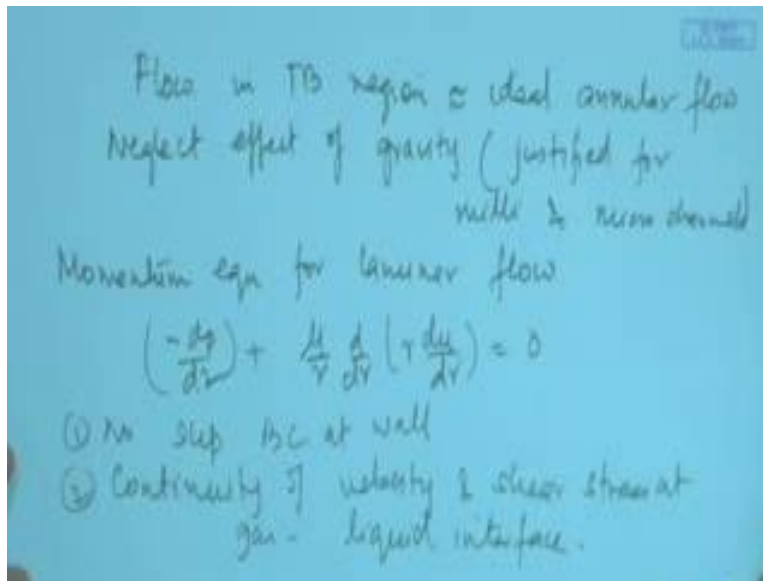 Flow in TB region ≈ ideal annular flow
Neglect effect of gravity (justified for
milli & micro channels
Momentum eqn for laminar flow
(-dp/dz) + μ/r d/dr (r du/dr) = 0
① No slip BC at wall
② Continuity of velocity & shear stress at
gas-liquid interface.